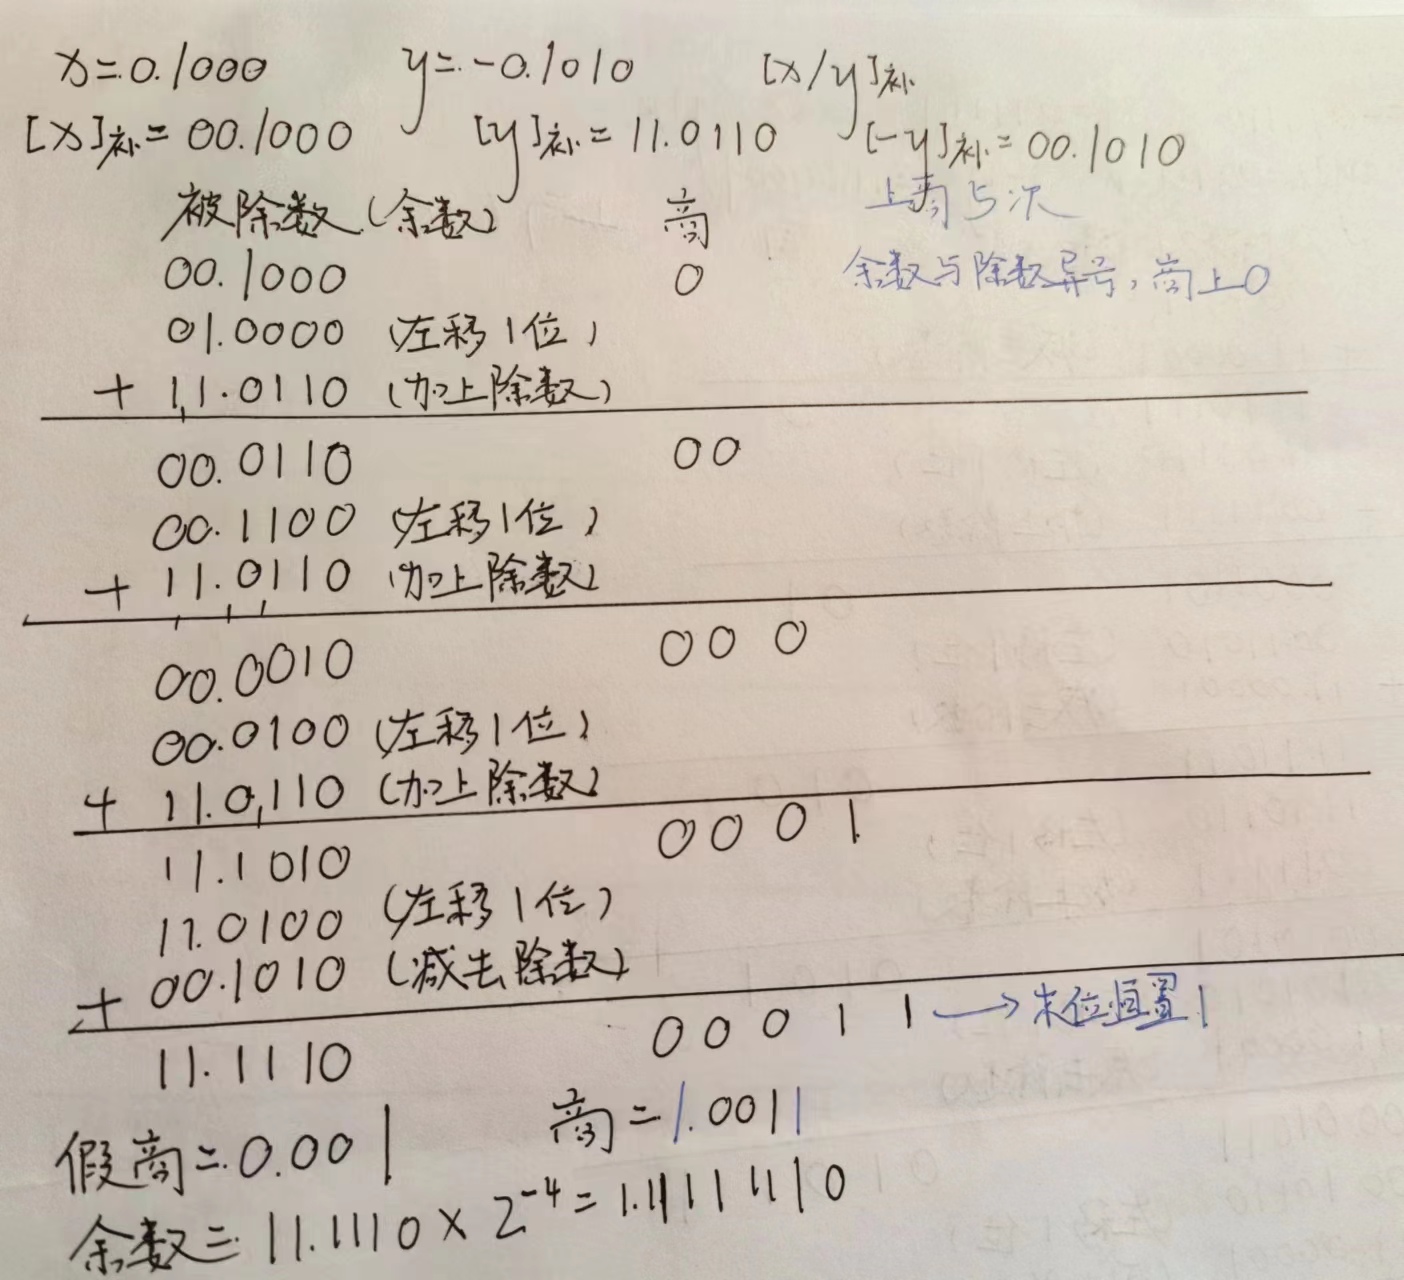 x=0.1000 y=-0.1010 [x/y]补
[x]补=00.1000 [y]补=11.0110 [-y]补=00.1010
被除数(余数) 商 上商5次
00.1000 0 余数与除数异号,商上0
01.0000 (左移1位)
+ 11.0110 (加上除数)
00.0110 00
00.1100 (左移1位)
+ 11.0110 (加上除数)
00.0010 000
00.0100 (左移1位)
+ 11.0110 (加上除数)
11.1010 0001
11.0100 (左移1位)
+ 00.1010 (减去除数)
11.1110 00011 → 末位恒置1
假商=0.001 商=1.0011
余数=11.1110×2⁻⁴=1.11111110